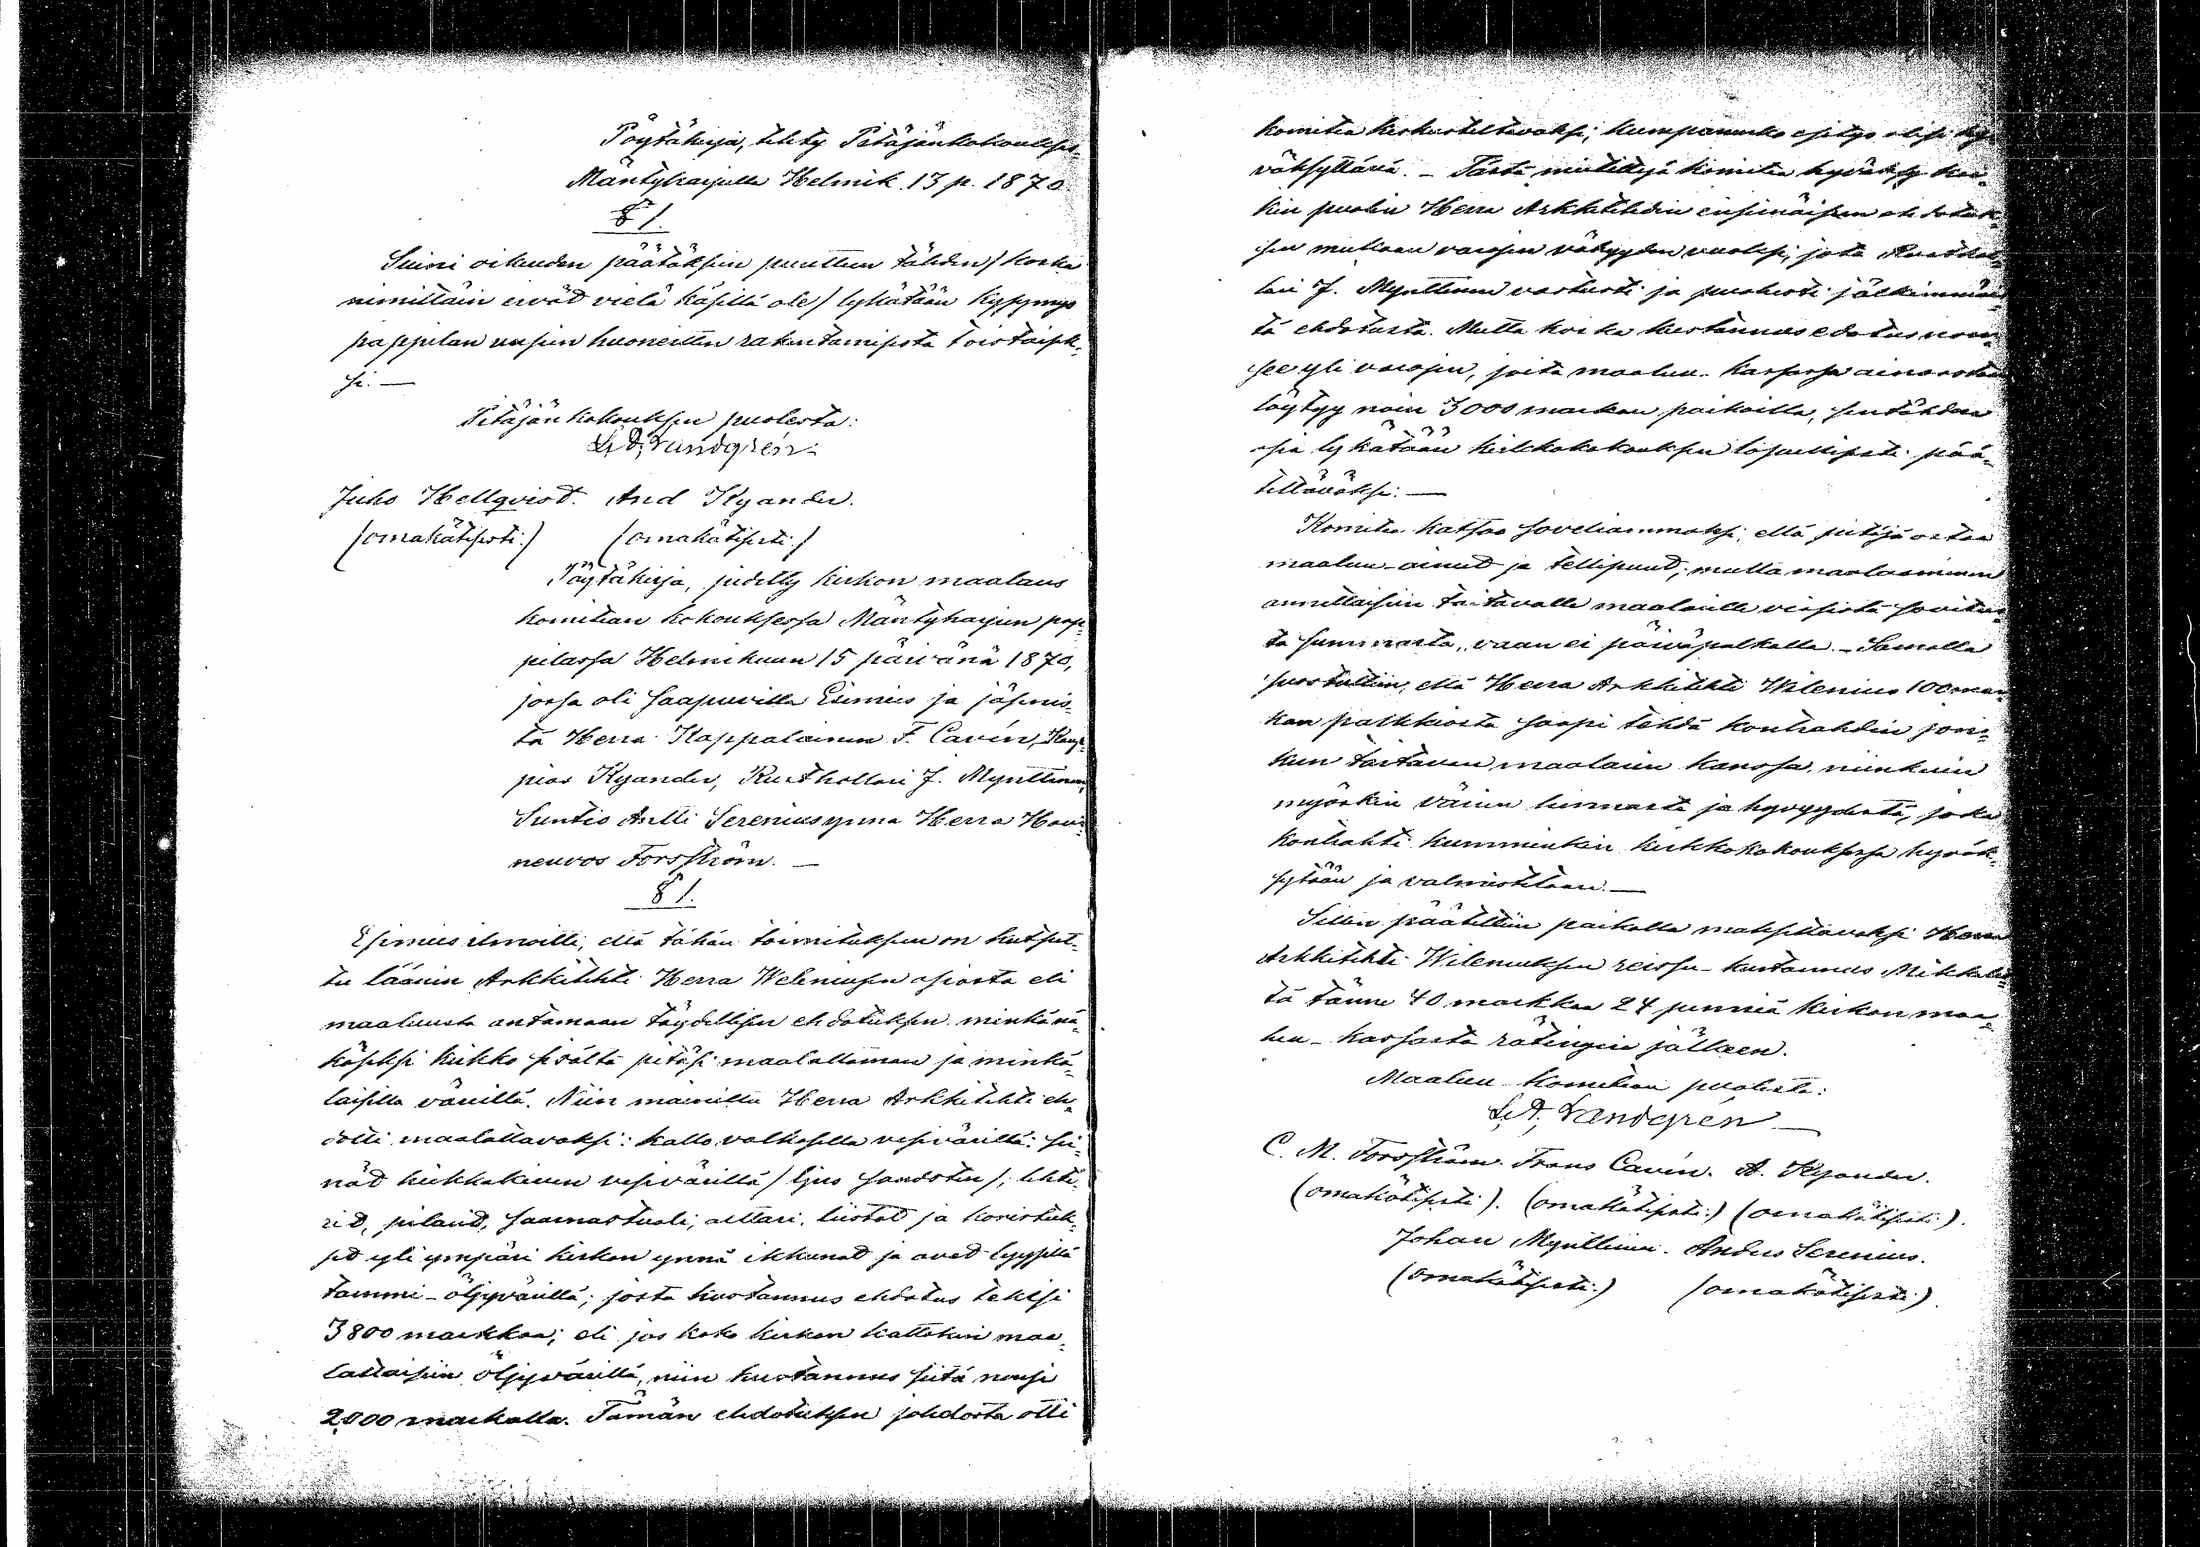 Pöytäkirja, tehty Pitäjänkokoukses-
Mäntyharjulla Helmik. 13 p. 1870.
§ 1.
oikeuden päätöksen puutteen tähden / koska
nimittäin eivät vielä käsillä ole / lykätään kysymys
pappilan uusien huoneitten rakentamisesta toistaisek-
si. —
Pitäjänkokouksen puolesta:
Juho Hellqvist. And Kyander.
(omakätisesti:) (omakätisesti:)
Pöytäkirja, pidetty kirkon maalaus
komitean kokouksessa Mäntyharjun pap-
pilassa Helmikuun 15 päivänä 1870,
jossa oli saapuvilla Esimies ja jäsenis-
tä Herra Kappalainen F. Cavén, Kaup-
pias Kyander, Rusthollari J. Mynttinen,
Suntio Antti Serenius ynnä Herra Hovi-
neuvos Forsström. —
§ 1.
Esimies ilmoitti, että tähän toimitukseen on kutsut-
tu läänin Arkkitehti Herra Weleniusen asiasta eli
maaluusta antamaan täydellisen ehdotuksen minkänä-
köiseksi kirkko sisältä pitäisi maalattaman ja minkä-
laisilla väreillä. Niin mainittu Herra Arkkitehti eh-
dotti maalattavaksi: katto valkosella vesivärillä: sei-
nät kirkkokiven vesivärillä / ljus sandsten /; lehte-
rit, pilarit, saarnastuoli, alttari, liistat ja koristuk-
set yli ympäri kirkon ynnä ikkunat ja ovet
tammi-öljyvärillä; josta kustannus ehdotus tekisi
3800 markkaa; eli jos koko kirkon kattokin maa-
lattaisiin öljyvärillä, niin kustannus siitä nousi
2000 markalla. Tämän ehdotuksen johdosta otti
komitea keskusteltavaksi, kumpaneko esitys olisi hy-
väksyttävä. — Tästä mietittyä komitea hyväksy
puolen Herra Arkkitehdin ensimäisen ehdotuk-
sen mukaan varojen vähyyden vuoksi, jota Rusthol-
lari J. Mynttinen vastusti ja puolusti jälkimmäis-
tä ehdotusta. Mutta koska kustannus edotus nou-
see yli varojen, joita maaluu-kassassa ainoastaan
löytyy noin 3000 markan paikoilla, sentähden
asia lykätään kirkkokokouksen lopullisesti pää-
tettäväksi: —
Komitea katsoo soveliaammaksi, että pitäjä ostaa
maaluu-aineet ja tellipuut, mutta maalaaminen
annettaisiin taitavalle maalarille vissistä sovitus-
ta summasta, vaan ei päiväpalkalla. — Samalla
suostuttiin, että Herra Arkkitehti Wilenius 100 mar-
kan palkkiosta saapi tehdä kontrahdin jon-
kun taitavan maalarin kanssa, niinkuin
myöskin värien hinnasta ja hyvyydestä, joka
kontrahti kumminkin kirkkokokouksessa hyväk-
sytään ja valmistetaan. —
Sitten päätettiin paikalla maksettavaksi Herra
Arkkitehti Wileniuksen reissu-kustannus Mikkelis-
tä tänne 40 markkaa 24 penniä kirkon maa-
luu-kassasta rätingin jälkeen.
Maaluu-komitean puolesta:
C. M. Forsström. Frans Cavén. A. Kyander.
(omakätisesti:). (omakätisesti:) (omakätisesti:).
Johan Mynttinen. Anders Serenius.
(omakätisesti:) (omakätisesti:).